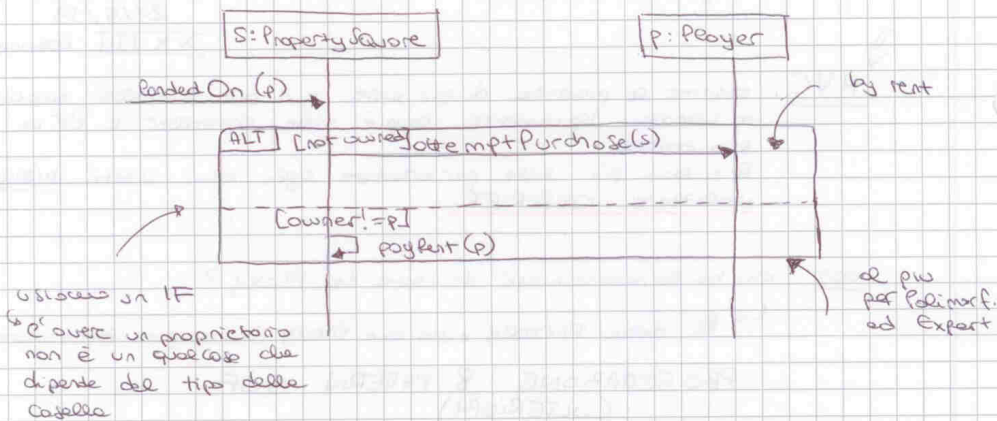 S: PropertySquare
p: Player
landedOn (p)
by rent
ALT [not owned] attemptPurchase(s)
[owner!=p]
payRent(p)
usiamo un IF
è avere un proprietario
non è un qualcosa che
dipende dal tipo della
casella
al più
per Polimorf.
ed Expert